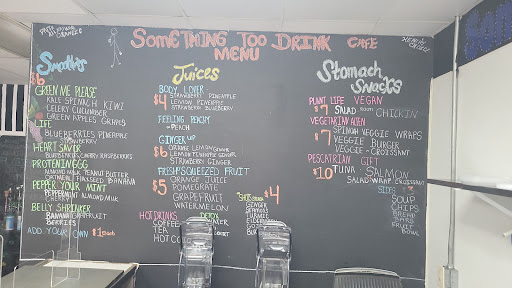 SomeTHING Too DRINK CAFE
MENU
Smoothies
$6
GREEN ME PLEASE
KALE SPINACH KIWI
CELERY CUCUMBER
GREEN APPLES GRAPES
LIFE
BLUEBERRIES PINEAPPLE
HEART SAVOR
BLUEBERRIES, CHERRY RASPBERRIES
PROTEIN/EGG
ALMOND MILK, PEANUT BUTTER
OATMEAL, FLAXSEED & BANANA
PEPPER YOUR MINT
PEPPERMINT ALMOND MILK
CHERRY
BELLY SHRINKER
BANANA GRAPEFRUIT
BERRIES
ADD YOUR OWN $1 each
Juices
BODY LOVER
$4 STRAWBERRY PINEAPPLE
LEMON PINEAPPLE
STRAWBERRY BLUEBERRY
FEELING PEACHY
-PEACH
GINGER UP
$6 ORANGE LEMON GINGER
LEMON TURMERIC GINGER
STRAWBERRY GINGER
FRESH SQUEEZED FRUIT
$5 ORANGE JUICE
POMEGRATE
GRAPEFRUIT
WATERMELON
HOT DRINKS
COFFEE
TEA
HOT CO
DETOX
SHOTS $4
GINGER
Stomach Snacks
PLANT LIFE VEGAN
$7 SALAD CHICKEN
VEGETARIAN ADEN
$7 SPINACH VEGGIE WRAPS
VEGGIE BURGER
VEGGIE - CROISSANT
PESCATRIAN GIFT
$10 TUNA SALMON
SALAD WRAP CROISSANT
SIDES
SOUP
CHIPS
BREAD
FRUIT
BOWL